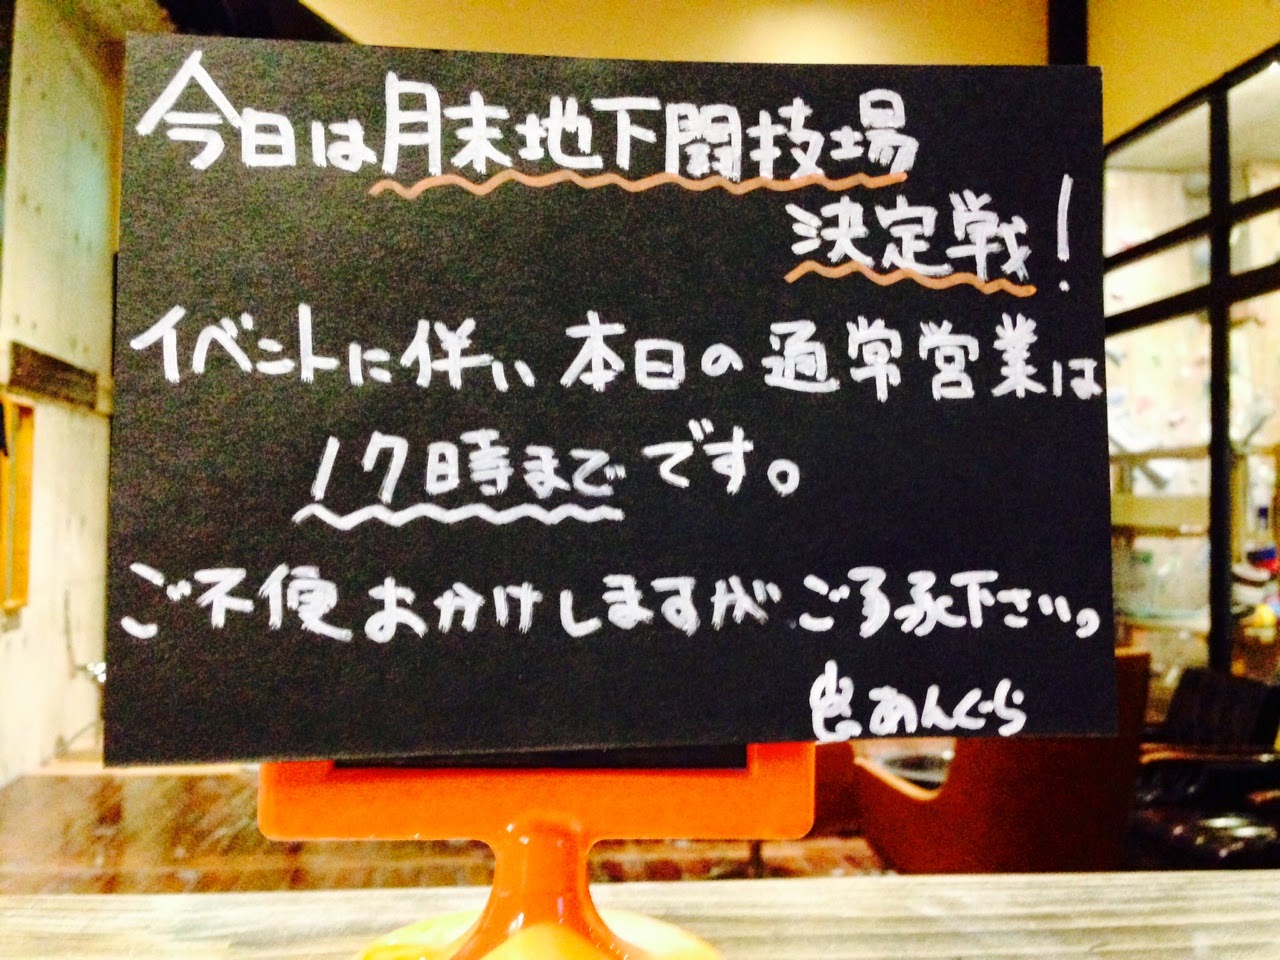 今日は月末地下闘技場
決定戦!
イベントに伴い本日の通常営業は
17時までです。
ご不便おかけしますがご了承下さい。
あんぐら